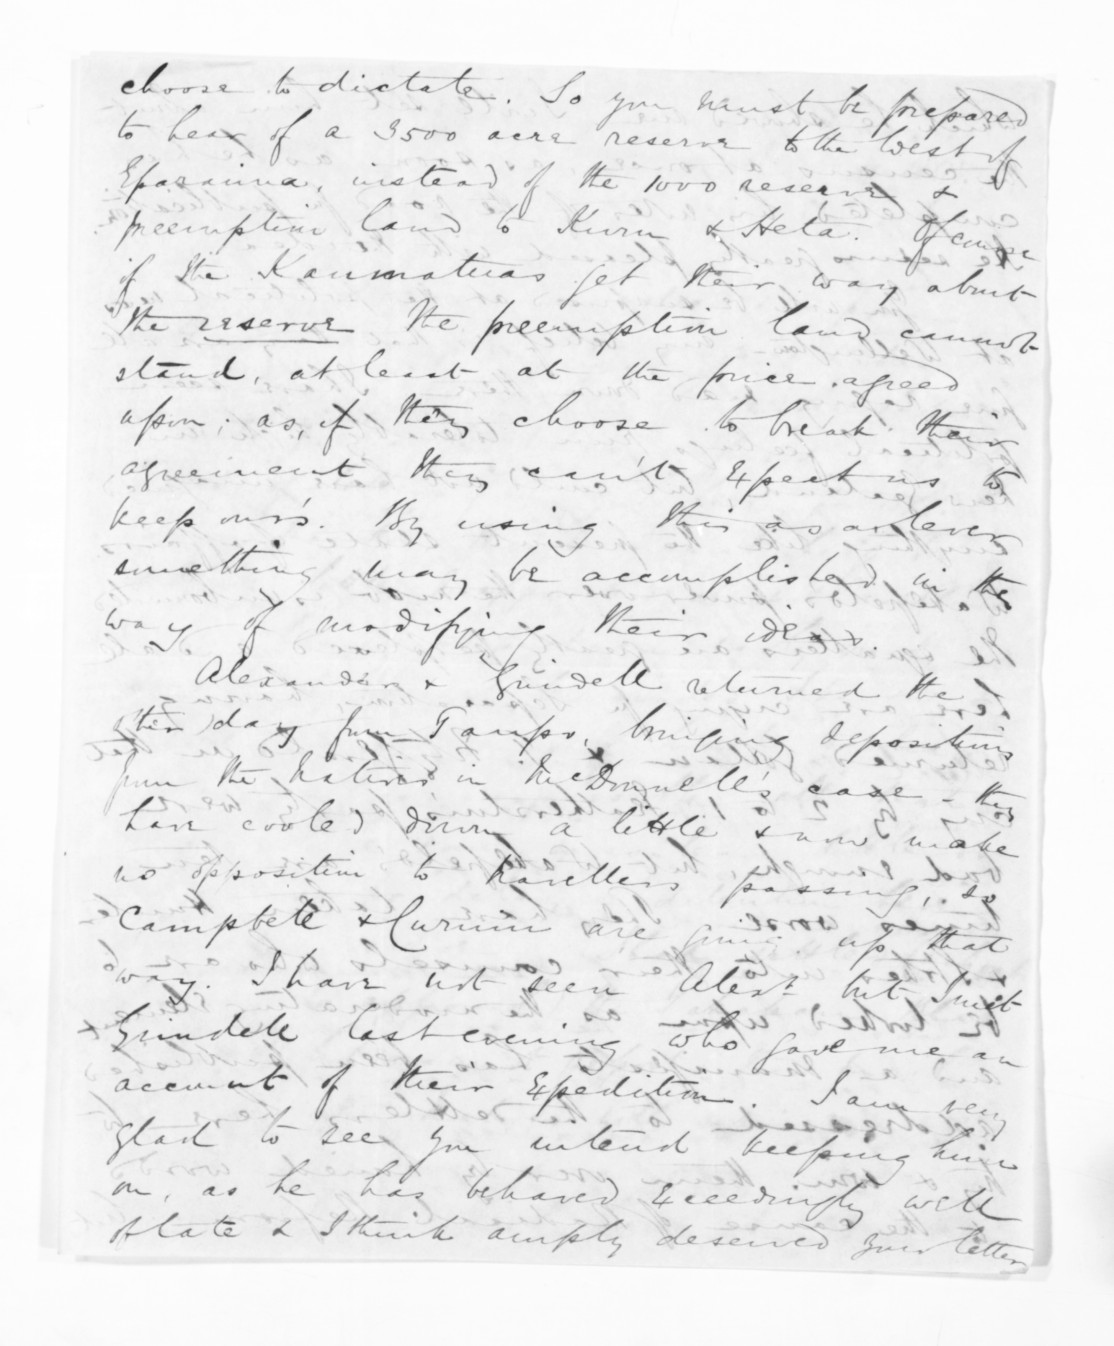 choose to dictate. So you must be prepared
to hear of a 3500 acre reserve to the West of
Eparaima, instead of the 1000 reserve &
preemption land to Kuru & Heta. Of course
if the Kaumatuas get their way about
the reserve the preemption land cannot
stand, at least at the price agreed
upon; as, if they choose to break their
agreement they can't expect us to
keep our's. By using this as a lever
something may be accomplished in the
way of modifying their ideas.
Alexander & Grindell returned the
other day from Taupo, bringing depositions
from the Natives in McDonnell's case - they
have cooled down a little & now make
no opposition to travellers passing, so
Campbell & Curling are going up that
way. I have not seen Alexr. but I met
Grindell last evening who gave me an
account of their Expedition. I am very
glad to see you intend keeping him
on, as he has behaved exceedingly well
of late & I think amply deserved your letter